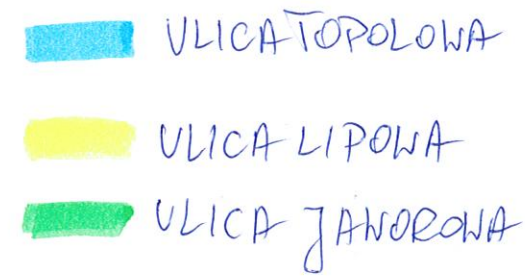 ULICA TOPOLOWA
ULICA LIPOWA
ULICA JAWOROWA